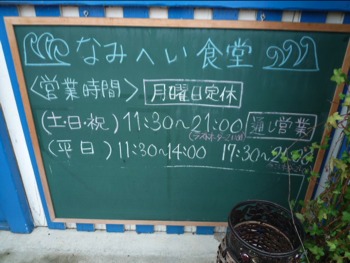 なみへい食堂
〈営業時間〉 月曜日定休
(土・日・祝) 11:30〜21:00 通し営業
(平日) 11:30〜14:00 17:30〜21:00